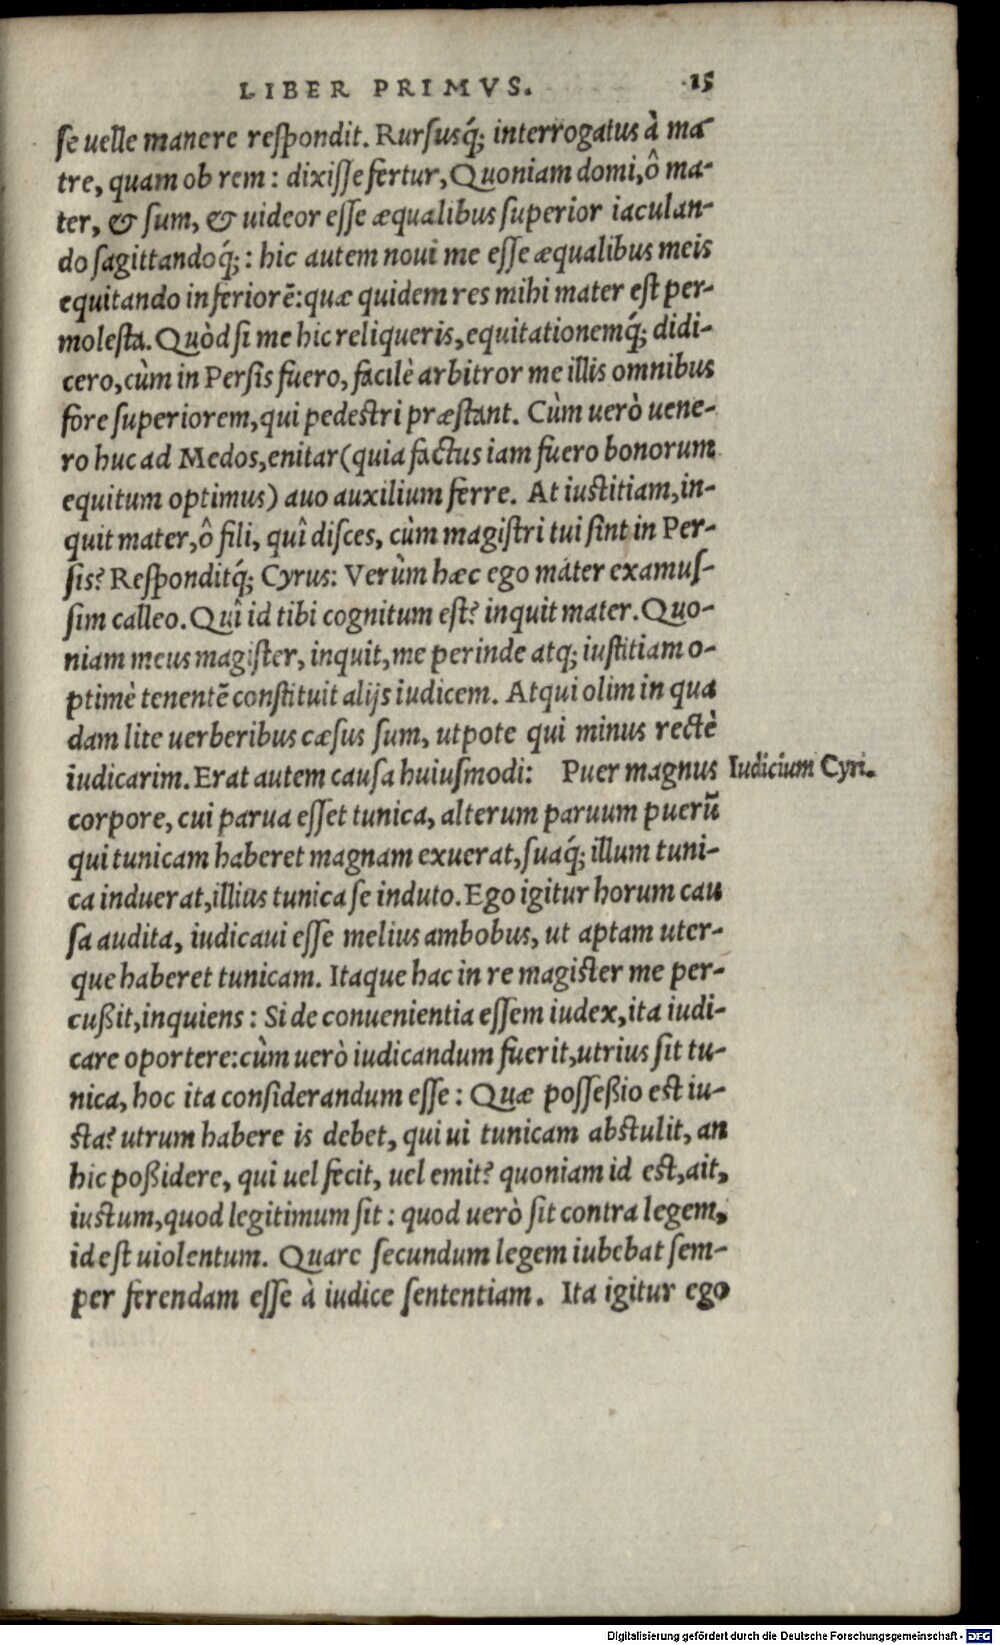 LIBER PRIMVS. 15
se uelle manere respondit. Rursusq́; interrogatus à ma
tre, quam ob rem: dixisse fertur, Quoniam domi, ô ma-
ter, & sum, & uideor esse æqualibus superior iaculan-
do sagittandoq́;: hic autem noui me esse æqualibus meis
equitando inferiorẽ: quæ quidem res mihi mater est per-
molesta. Quòd si me hic reliqueris, equitationemq́; didi-
cero, cùm in Persis fuero, facilè arbitror me illis omnibus
fore superiorem, qui pedestri præstant. Cùm uerò uene-
ro huc ad Medos, enitar (quia factus iam fuero bonorum
equitum optimus) auo auxilium ferre. At iustitiam, in-
quit mater, ô fili, quî disces, cùm magistri tui sint in Per-
sis? Responditq́; Cyrus: Verùm hæc ego mater examus-
sim calleo. Quî id tibi cognitum est? inquit mater. Quo-
niam meus magister, inquit, me perinde atq; iustitiam o-
ptimè tenentẽ constituit alijs iudicem. Atqui olim in qua
dam lite uerberibus cæsus sum, utpote qui minus rectè
iudicarim. Erat autem causa huiusmodi: Puer magnus
Iudicium Cyri.
corpore, cui parua esset tunica, alterum paruum puerũ
qui tunicam haberet magnam exuerat, suaq́; illum tuni-
ca induerat, illius tunica se induto. Ego igitur horum cau
sa audita, iudicaui esse melius ambobus, ut aptam uter-
que haberet tunicam. Itaque hac in re magister me per-
cußit, inquiens: Si de conuenientia essem iudex, ita iudi-
care oportere: cùm uerò iudicandum fuerit, utrius sit tu-
nica, hoc ita considerandum esse: Quæ posseßio est iu-
sta? utrum habere is debet, qui ui tunicam abstulit, an
hic poßidere, qui uel fecit, uel emit? quoniam id est, ait,
iustum, quod legitimum sit: quod uerò sit contra legem,
id est uiolentum. Quare secundum legem iubebat sem-
per ferendam esse à iudice sententiam. Ita igitur ego
Digitalisierung gefördert durch die Deutsche Forschungsgemeinschaft - DFG